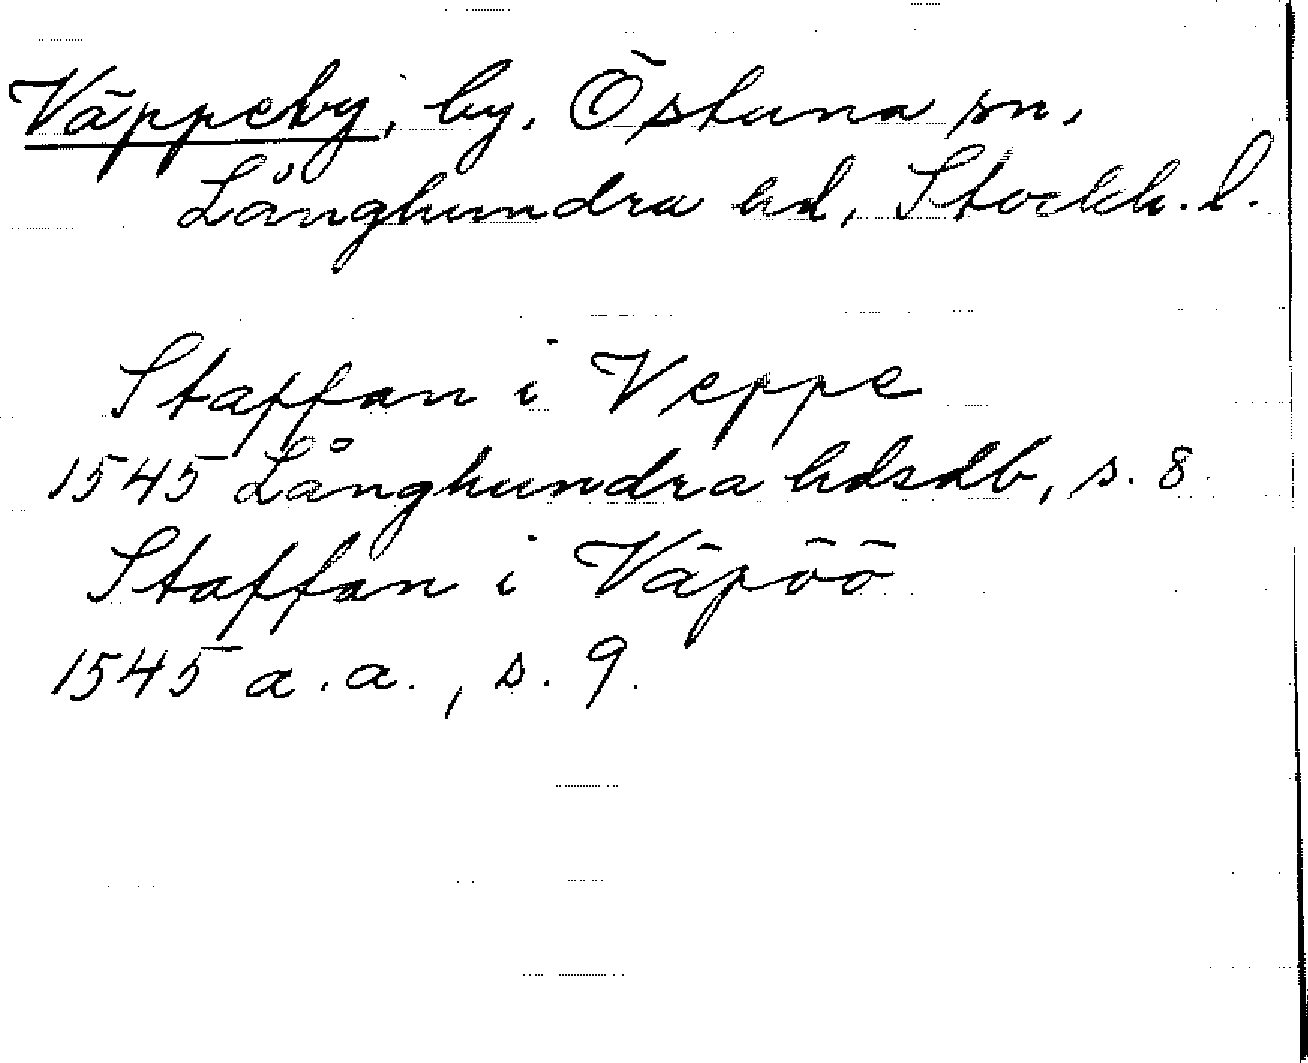 Väppeby, by. Östuna sn.
Långhundra hd, Stockh. l.
Staffan i Veppe
1545 Långhundra hdsdb, s. 8
Staffan i Väpöö
1545 a.a., s. 9.